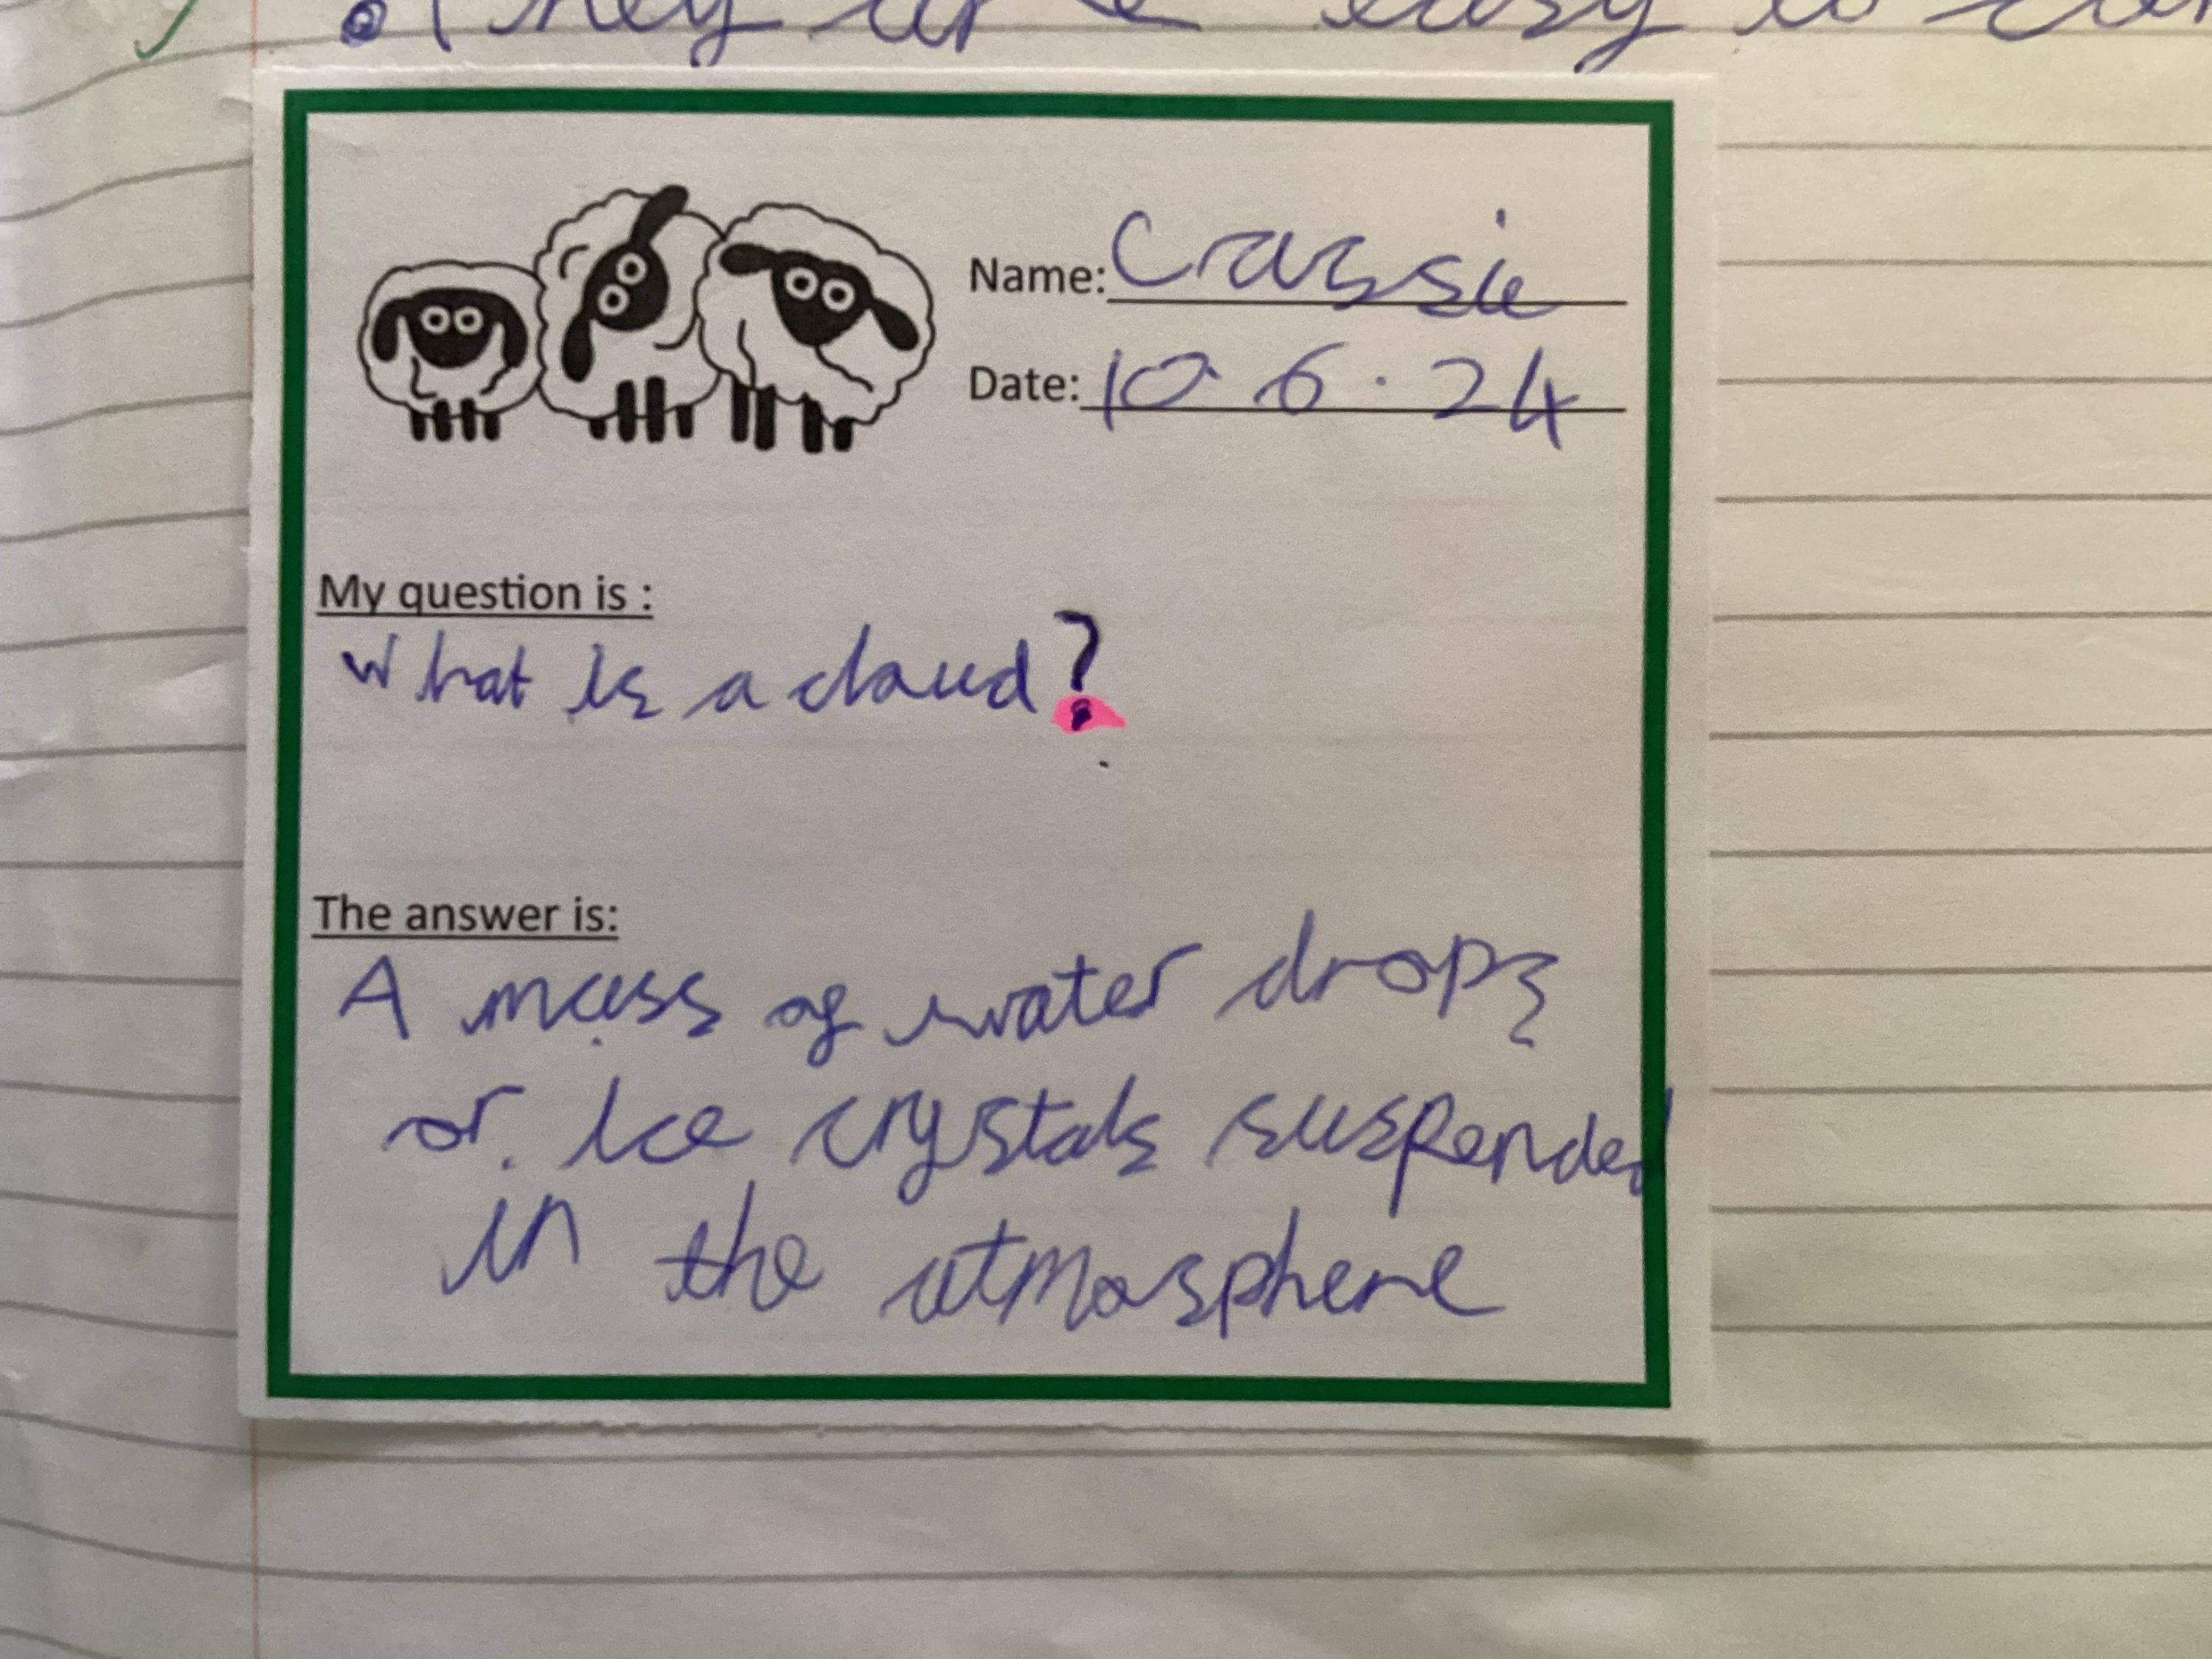 . They are easy to
Name: Cassie
Date: 10.6.24
My question is :
What is a cloud?
The answer is:
A mass of water drops
or ice crystals suspended
in the atmosphere